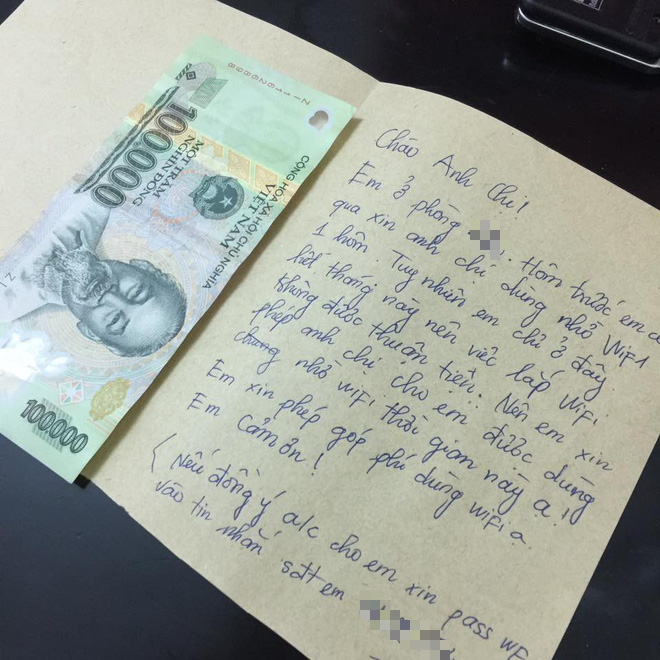 CỘNG HÒA XÃ HỘI CHỦ NGHĨA
VIỆT NAM
100000
MỘT TRĂM
NGHÌN ĐỒNG
100000
Chào Anh Chị!
Em ở phòng . Hôm trước em có
qua xin anh chị dùng nhờ WiFi
1 hôm. Tuy nhiên em chỉ ở đây
hết tháng này nên việc lắp WiFi
không được thuận tiện. Nên em xin
phép anh chị cho em được dùng
chung nhờ WiFi thời gian này ạ!
Em xin phép góp phí dùng WiFi ạ.
Em Cảm ơn!
(Nếu đồng ý a/c cho em xin pass WF
vào tin nhắn sđt em